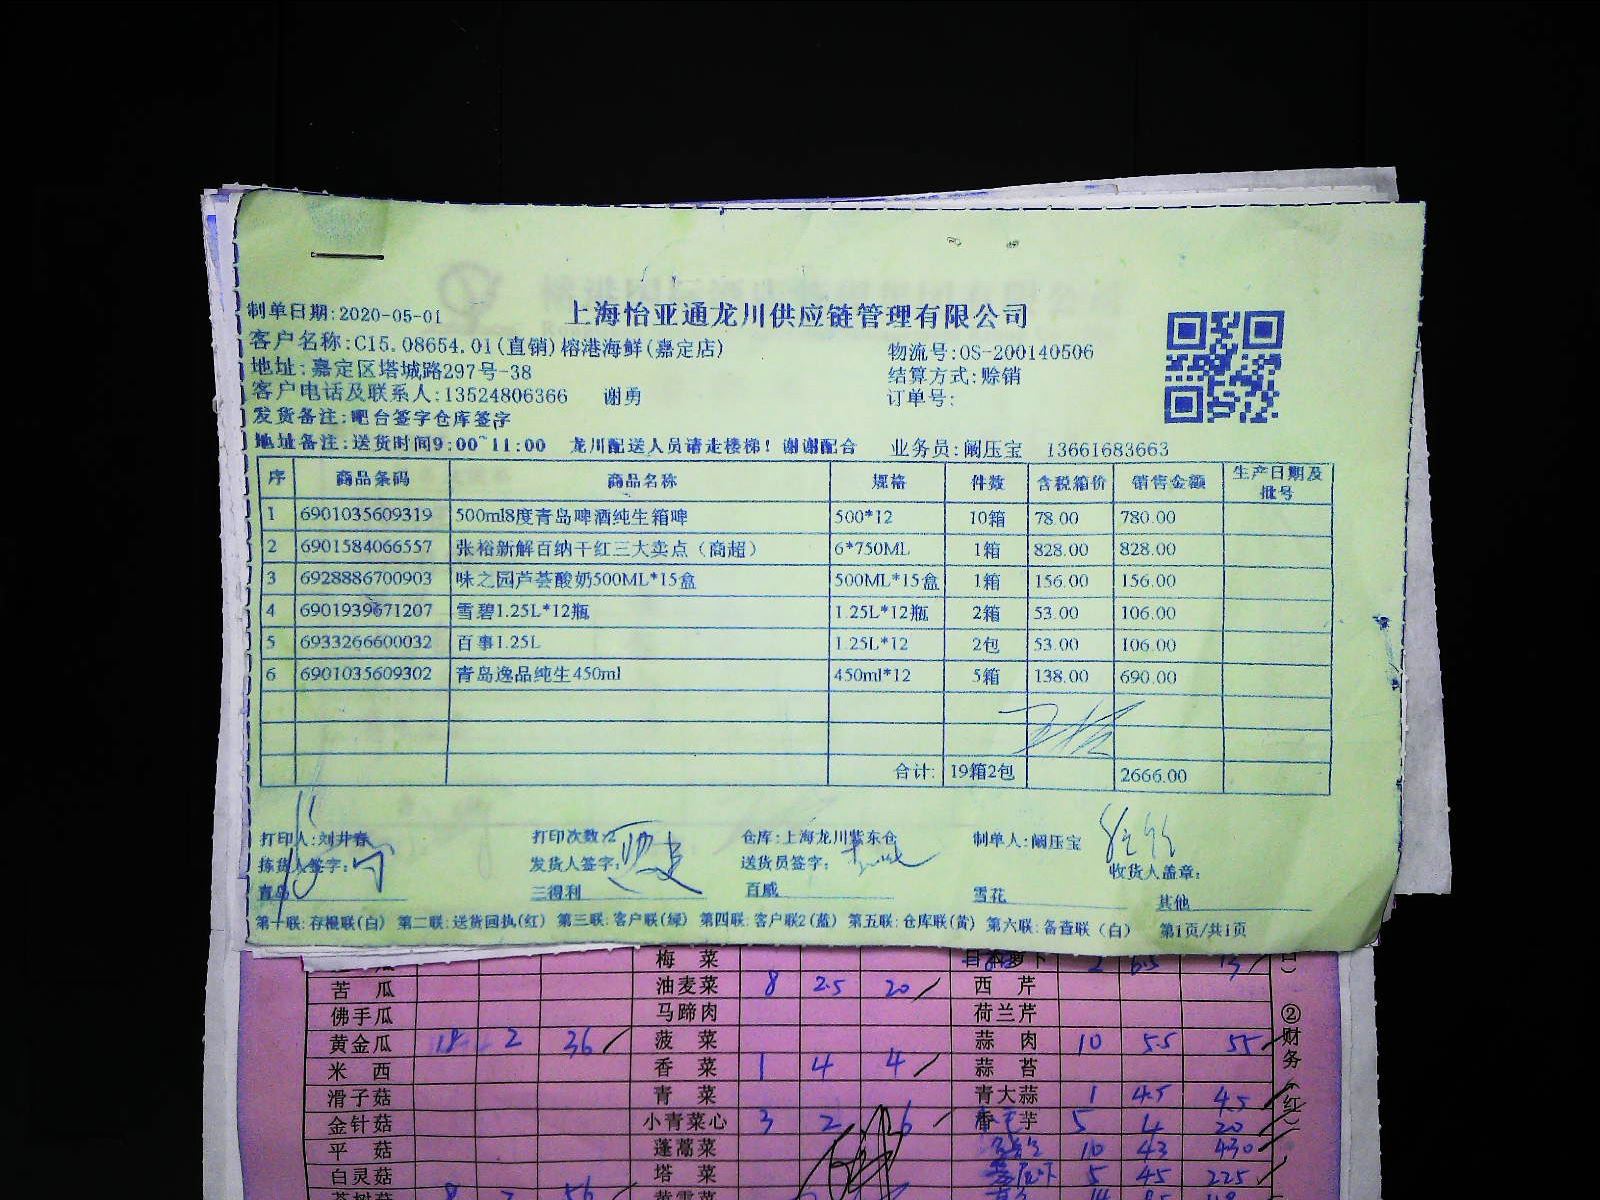 上海怡亚通龙川供应链管理有限公司
制单日期:2020-05-01
客户名称:C15.08654.01(直销)榕港海鲜(嘉定店) 物流号:OS-200140506
地址:嘉定区塔城路297号-38 结算方式:赊销
客户电话及联系人:13524806366 谢勇 订单号:
发货备注:吧台签字仓库签字
地址备注:送货时间9:00~11:00 龙川配送人员请走楼梯! 谢谢配合 业务员:阚压宝 13661683663
序 商品条码 商品名称 规格 件数 含税箱价 销售金额 生产日期及批号
1 6901035609319 500ml8度青岛啤酒纯生箱啤 500*12 10箱 78.00 780.00
2 6901584066557 张裕新解百纳干红三大卖点（商超） 6*750ML 1箱 828.00 828.00
3 6928886700903 味之园芦荟酸奶500ML*15盒 500ML*15盒 1箱 156.00 156.00
4 6901939671207 雪碧1.25L*12瓶 1.25L*12瓶 2箱 53.00 106.00
5 6933266600032 百事1.25L 1.25L*12 2包 53.00 106.00
6 6901035609302 青岛逸品纯生450ml 450ml*12 5箱 138.00 690.00
合计: 19箱2包 2666.00
打印人:刘井春 打印次数:2 仓库:上海龙川紫东仓 制单人:阚压宝
拣货人签字: 发货人签字: 送货员签字: 收货人盖章:
青岛 三得利 百威 雪花 其他
第一联:存根联(白) 第二联:送货回执(红) 第三联:客户联(绿) 第四联:客户联2(蓝) 第五联:仓库联(黄) 第六联:备查联（白） 第1页/共1页
梅菜
苦瓜 油麦菜 8 2.5 20 西芹
佛手瓜 马蹄肉 荷兰芹
黄金瓜 18 2 36 菠菜 蒜肉 10 5.5 55
米西 香菜 1 4 4 蒜苔
滑子菇 青菜 青大蒜 1 4.5 4.5
金针菇 小青菜心 3 2 6 芋 5 4 20
平菇 蓬蒿菜 10 43 430
白灵菇 塔菜 5 45 225
②财务(红)